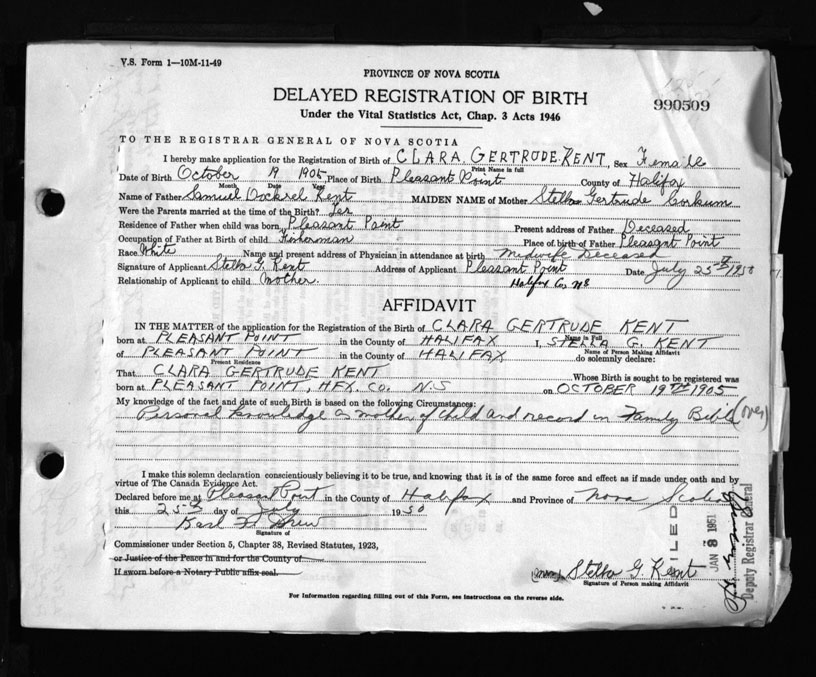 V.S. Form 1—10M-11-49
PROVINCE OF NOVA SCOTIA
DELAYED REGISTRATION OF BIRTH
990509
Under the Vital Statistics Act, Chap. 3 Acts 1946
TO THE REGISTRAR GENERAL OF NOVA SCOTIA
I hereby make application for the Registration of Birth of CLARA GERTRUDE KENT, Sex Female
Print Name in full
Date of Birth October 19 1905 Place of Birth Pleasant Point County of Halifax
Month Date Year
Name of Father Samuel Kent MAIDEN NAME of Mother Stella Gertrude Corkum
Were the Parents married at the time of the Birth? Yes
Residence of Father when child was born Pleasant Point Present address of Father Deceased
Occupation of Father at Birth of child Fisherman Place of birth of Father Pleasant Point
Race White Name and present address of Physician in attendance at birth Midwife Deceased
Signature of Applicant Stella G. Kent Address of Applicant Pleasant Point Date July 25th 1950
Relationship of Applicant to child Mother. Halifax Co. NS
AFFIDAVIT
IN THE MATTER of the application for the Registration of the Birth of CLARA GERTRUDE KENT
Name in Full
born at PLEASANT POINT in the County of HALIFAX I, STELLA G. KENT
Name of Person Making Affidavit
of PLEASANT POINT in the County of HALIFAX do solemnly declare:
Present Residence
That CLARA GERTRUDE KENT Whose Birth is sought to be registered was
born at PLEASANT POINT, HFX. CO. N.S on OCTOBER 19TH 1905
My knowledge of the fact and date of such Birth is based on the following Circumstances:
Personal knowledge as mother of child and record in Family Bible (over)
I make this solemn declaration conscientiously believing it to be true, and knowing that it is of the same force and effect as if made under oath and by
virtue of The Canada Evidence Act.
Declared before me at Pleasant Point in the County of Halifax and Province of Nova Scotia
this 25 day of July 1950
Karl
Signature of
Commissioner under Section 5, Chapter 38, Revised Statutes, 1923,
or Justice of the Peace in and for the County of
If sworn before a Notary Public affix seal.
(Mrs) Stella G. Kent
Signature of Person making Affidavit
FILED
JAN 8 1951
Deputy Registrar General
For Information regarding filling out of this Form, see instructions on the reverse side.